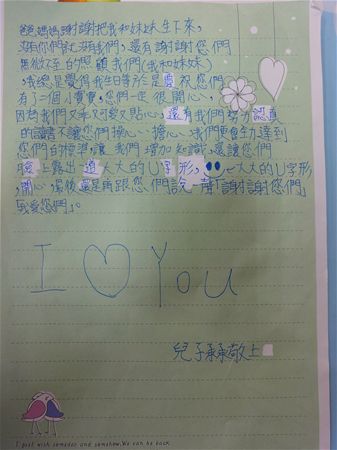 爸媽媽謝謝把我和妹妹生下來,
沒你們就沒我們,還有謝謝您們
無微不至的照顧我們(我和妹妹)
,我總是覺得我生日等於是慶祝您們
有了一個小寶寶,您們一定很開心,
因為我們又乖又可愛又貼心,還有我們努力認真
的讀書不讓您們操心、擔心,我們更會生力達到
您們的標準,讓我們增加知識,還讓您們
臉上露出一道大大的U字形, 大大的U字形
,開心,最後還是再跟您們說一聲「謝謝您們」
「我愛您們」。
I ♡ You
兒子 敬上
I just wish someday and somehow, We can be back